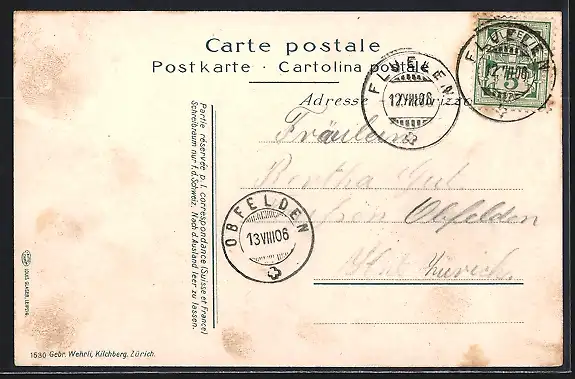 Carte postale
Postkarte · Cartolina postale
FLUELEN
12.VIII.06
FLUELEN
12.VIII.06
5
Adresse
Fräulein
Bertha Gut
Obfelden
Kt. Zürich
OBFELDEN
13.VIII.06
Partie réservée p. l. correspondance (Suisse et France)
Schreibraum nur f. d. Schweiz. Nach d'Ausland leer zu lassen.
LOUIS GLASER, LEIPZIG
1530 Gebr. Wehrli, Kilchberg, Zürich.